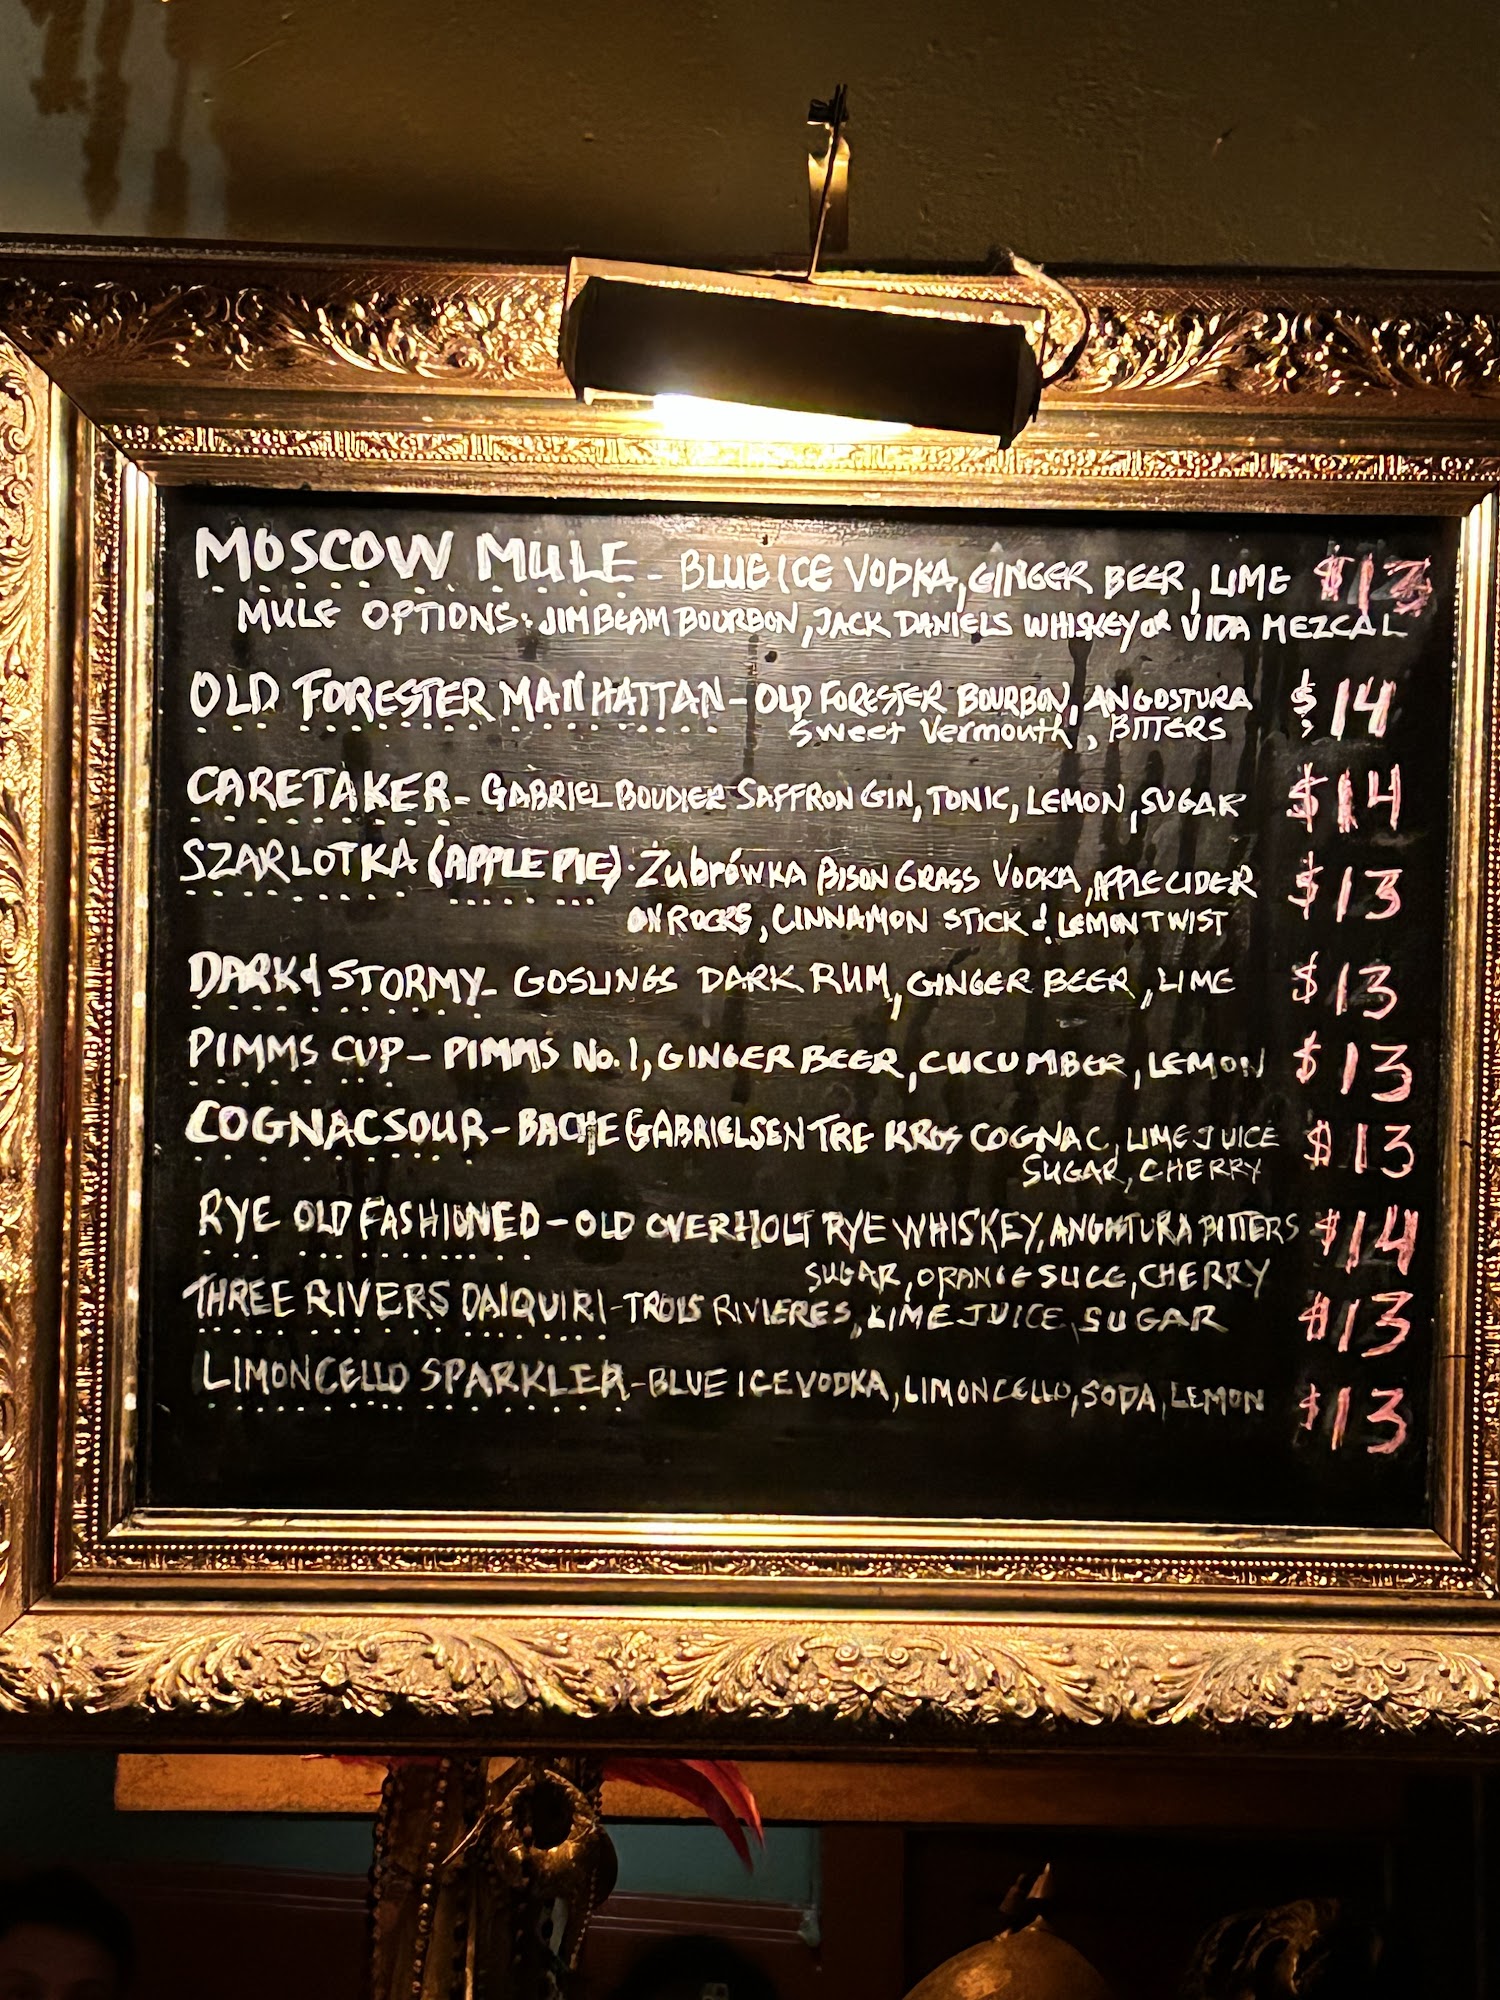 MOSCOW MULE - BLUE ICE VODKA, GINGER BEER, LIME $13
MULE OPTIONS: JIM BEAM BOURBON, JACK DANIELS WHISKEY OR VIDA MEZCAL
OLD FORESTER MANHATTAN - OLD FORESTER BOURBON, ANGOSTURA $14
Sweet Vermouth, BITTERS
CARETAKER - GABRIEL BOUDIER SAFFRON GIN, TONIC, LEMON, SUGAR $14
SZARLOTKA (APPLE PIE) · Żubrówka BISON GRASS VODKA, APPLE CIDER $13
ON ROCKS, CINNAMON STICK & LEMON TWIST
DARK & STORMY - GOSLINGS DARK RUM, GINGER BEER, LIME $13
PIMMS CUP - PIMMS No. 1, GINGER BEER, CUCUMBER, LEMON $13
COGNAC SOUR - BACHE GABRIELSEN TRE KROS COGNAC, LIME JUICE $13
SUGAR, CHERRY
RYE OLD FASHIONED - OLD OVERHOLT RYE WHISKEY, ANGOSTURA BITTERS $14
SUGAR, ORANGE SLICE, CHERRY
THREE RIVERS DAIQUIRI - TROIS RIVIERES, LIME JUICE, SUGAR $13
LIMONCELLO SPARKLER - BLUE ICE VODKA, LIMONCELLO, SODA, LEMON $13